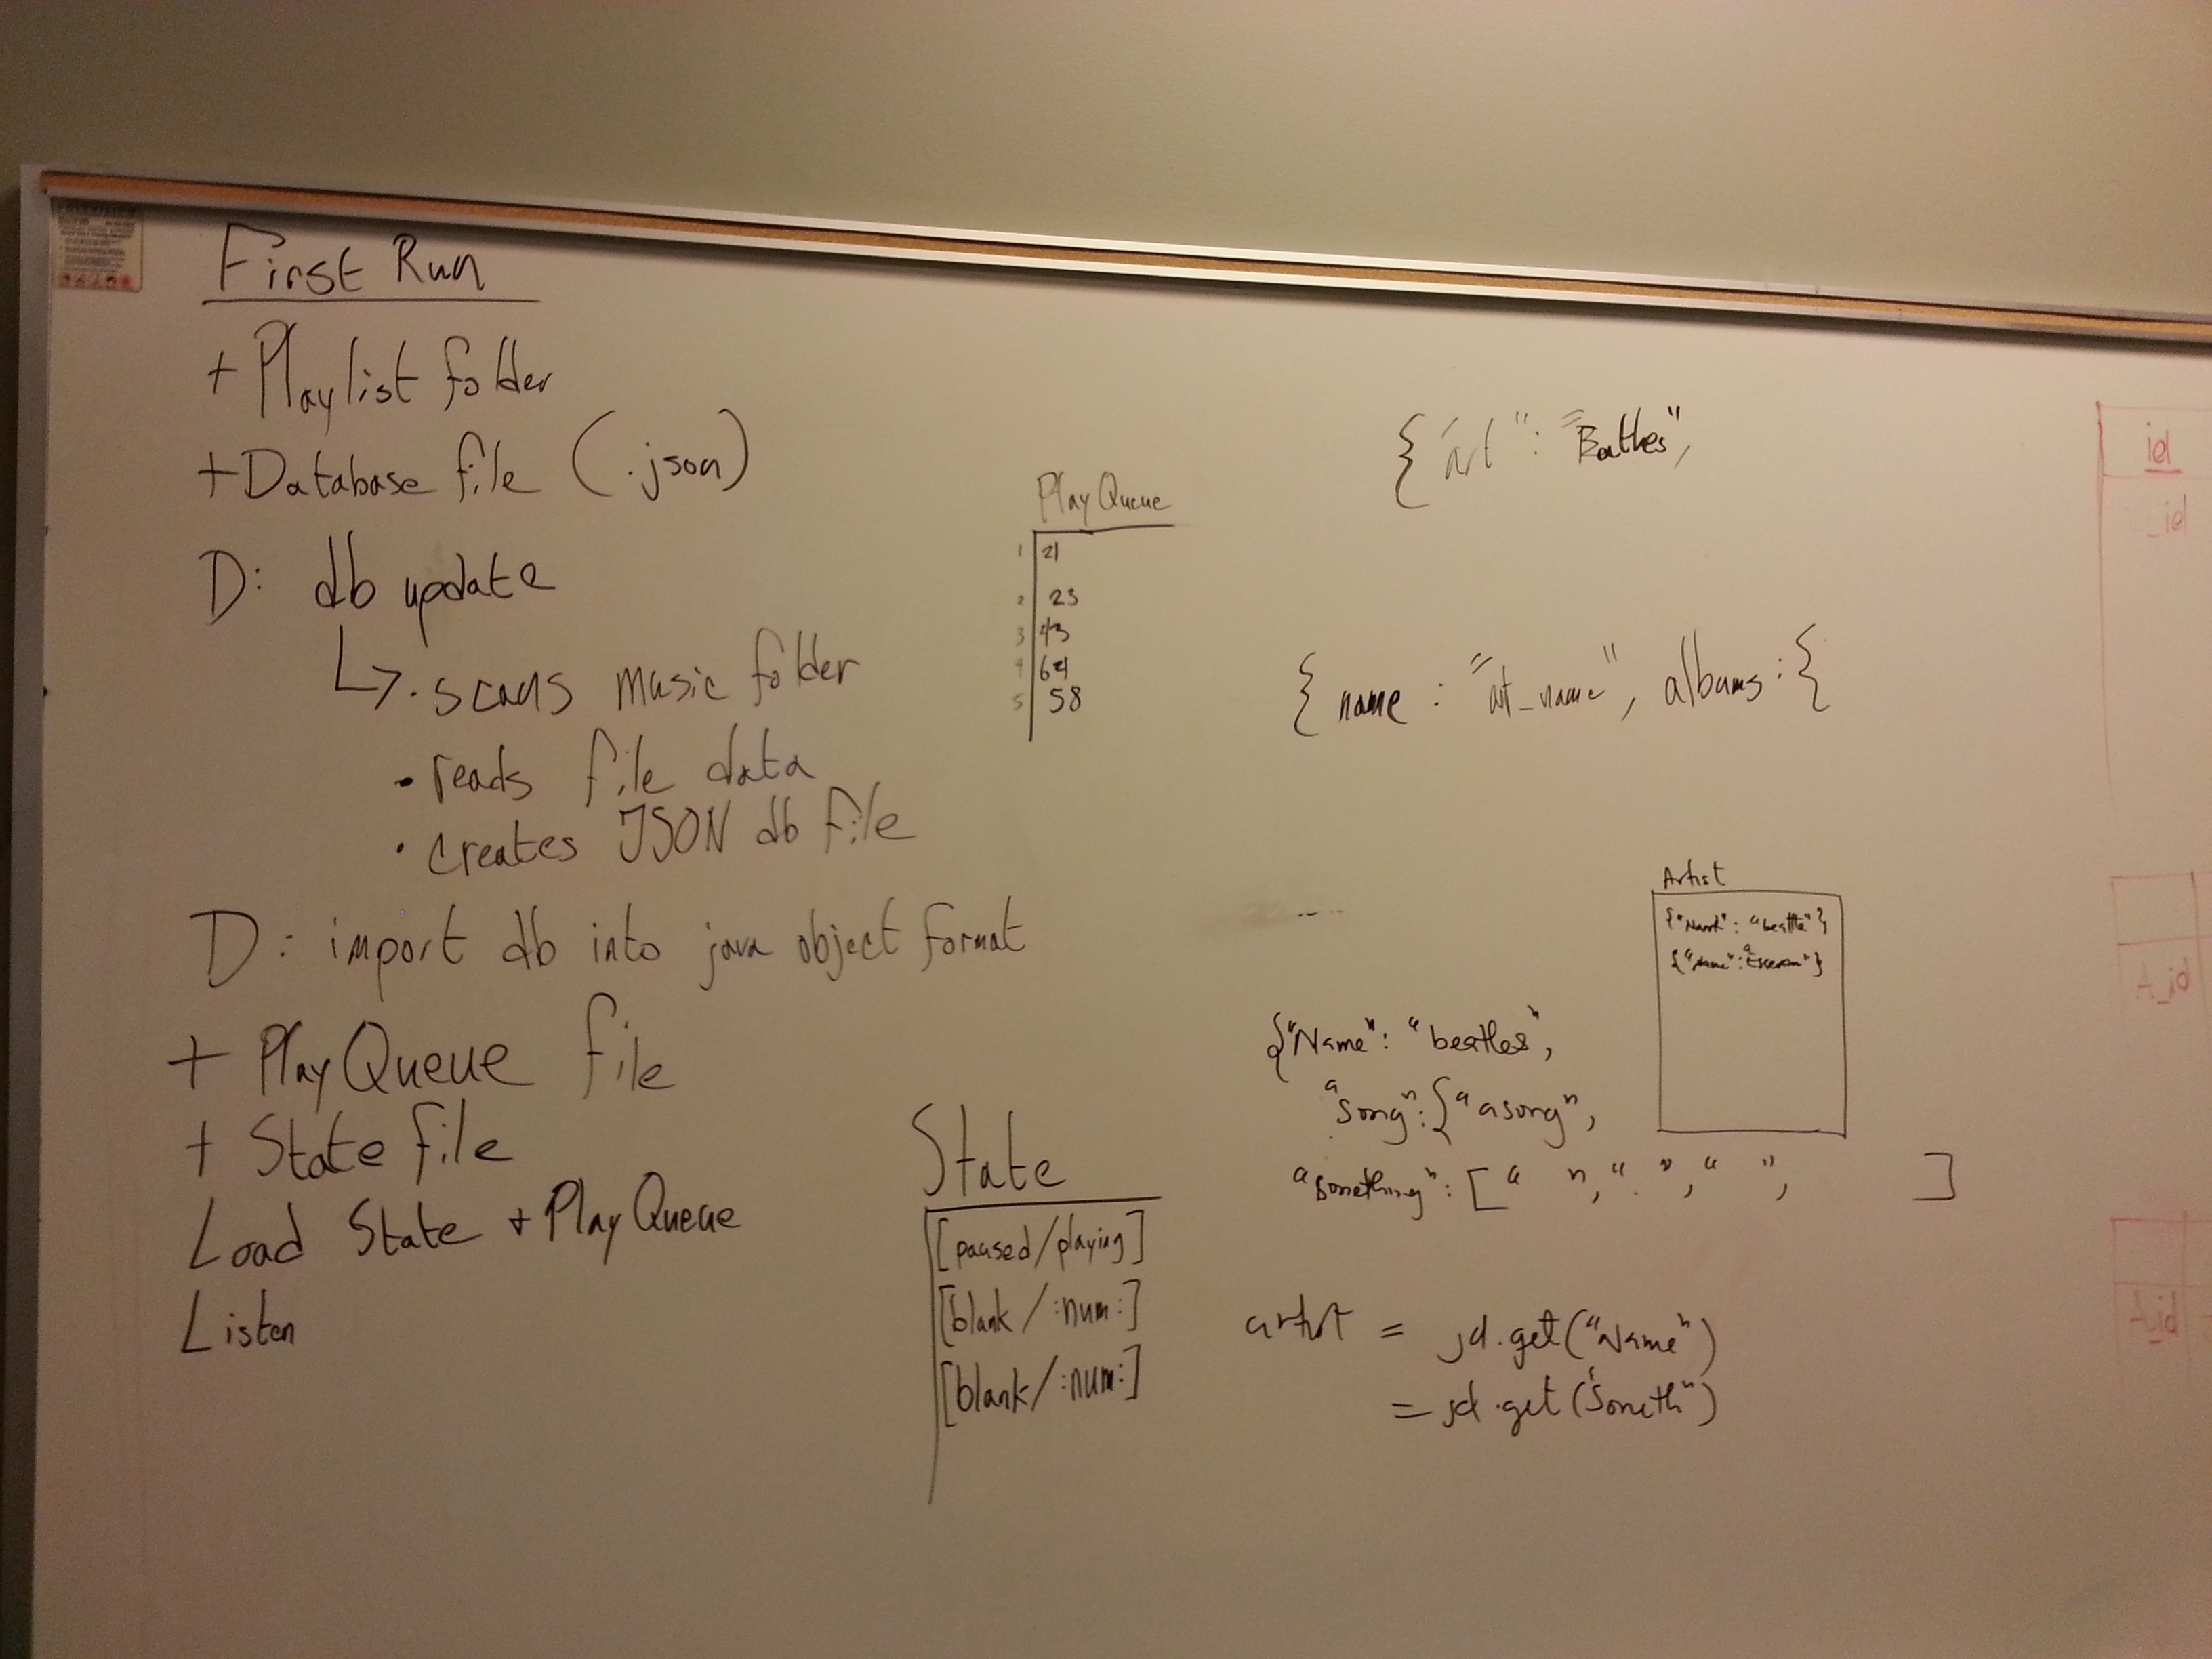 First Run
+ Playlist folder
+ Database file (.json)
D: db update
↳ · scans music folder
· reads file data
· creates JSON db file
D: import db into java object format
+ PlayQueue file
+ State file
Load State + PlayQueue
Listen
PlayQueue
1 21
2 23
3 43
4 64
5 58
State
[paused/playing]
[blank/:num:]
[blank/:num:]
{"art": "
{name: "art_name", albums:{
Artist
{"Name": "beatle"}
{"Name":
{"Name": "beatles",
"song":{"asong",
"something": [" ", " ", " ", ]
artist = jd.get("Name")
= jd.get("Someth")
id
_id
A_id
A_id